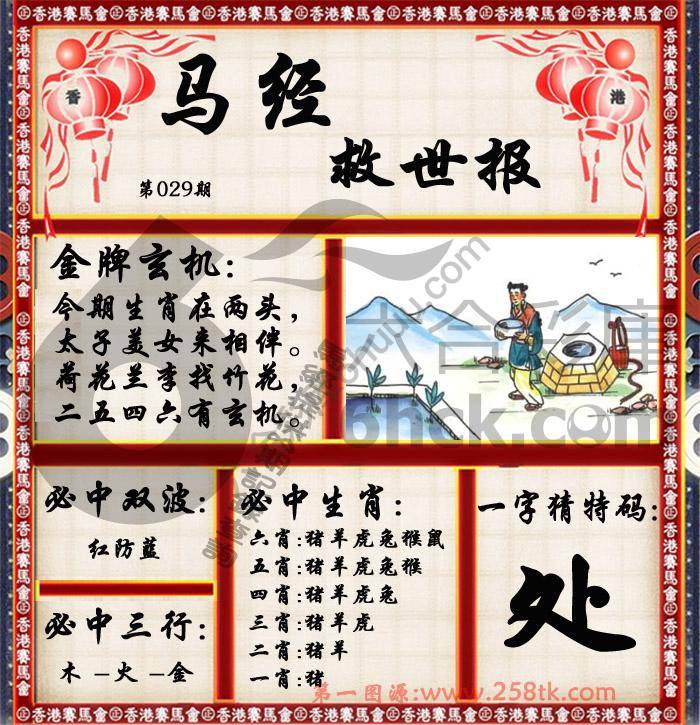 香港
马经
救世报
第029期
金牌玄机:
今期生肖在两头,
太子美女来相伴。
荷花兰李找竹花,
二五四六有玄机。
六合彩库
6hck.com
必中双波:
红防藍
必中三行:
木-火-金
必中生肖:
六肖:猪羊虎兔猴鼠
五肖:猪羊虎兔猴
四肖:猪羊虎兔
三肖:猪羊虎
二肖:猪羊
一肖:猪
一字猜特码:
处
第一图源:www.258tk.com
香港賽馬會